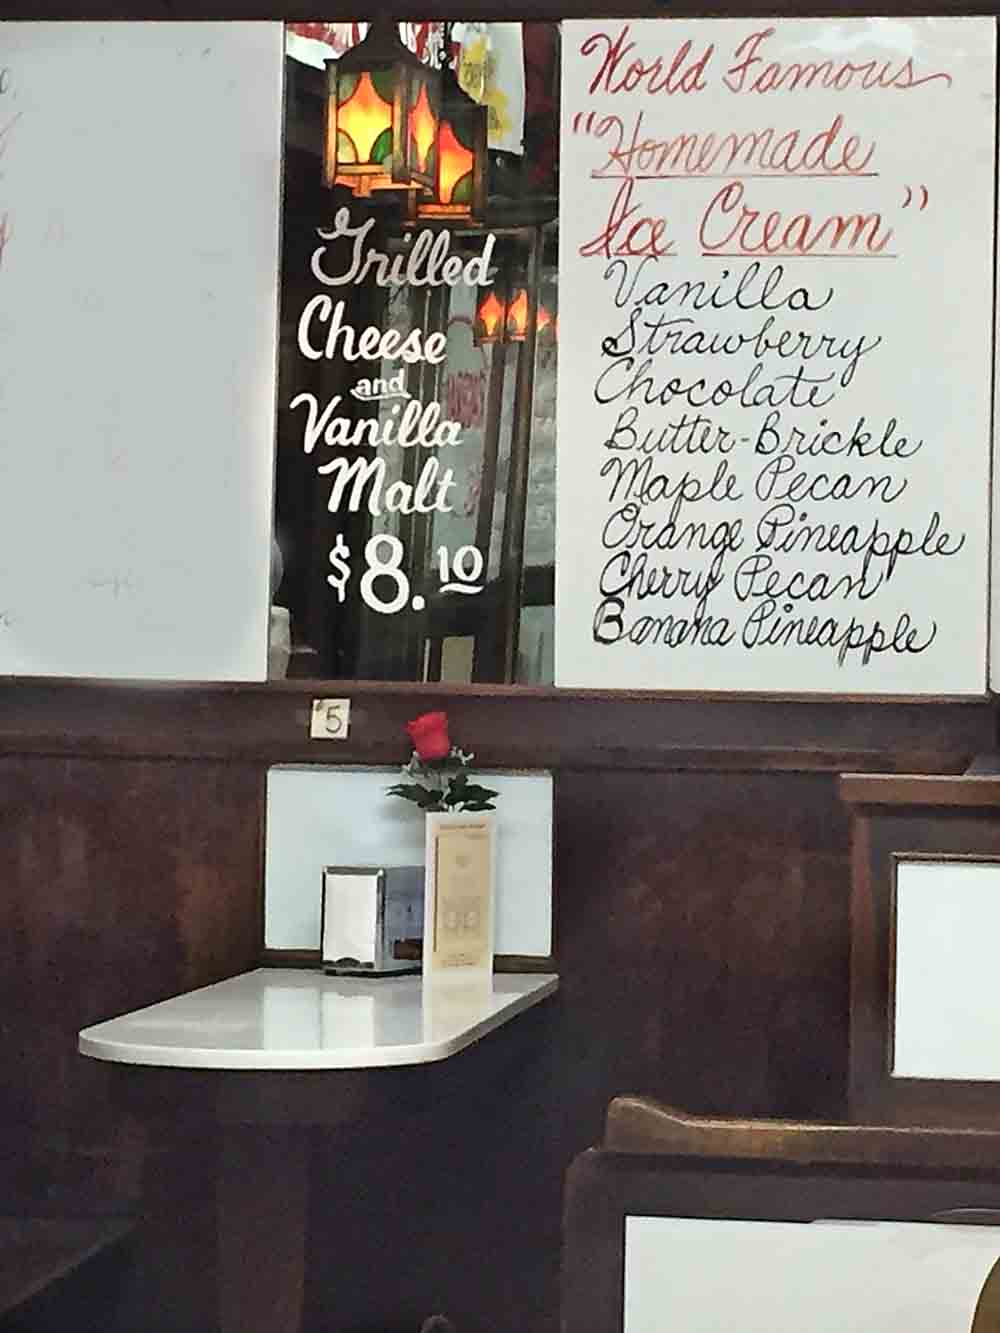 Grilled
Cheese
and
Vanilla
Malt
$8.10
World Famous
"Homemade
Ice Cream"
Vanilla
Strawberry
Chocolate
Butter-Brickle
Maple Pecan
Orange Pineapple
Cherry Pecan
Banana Pineapple
#5